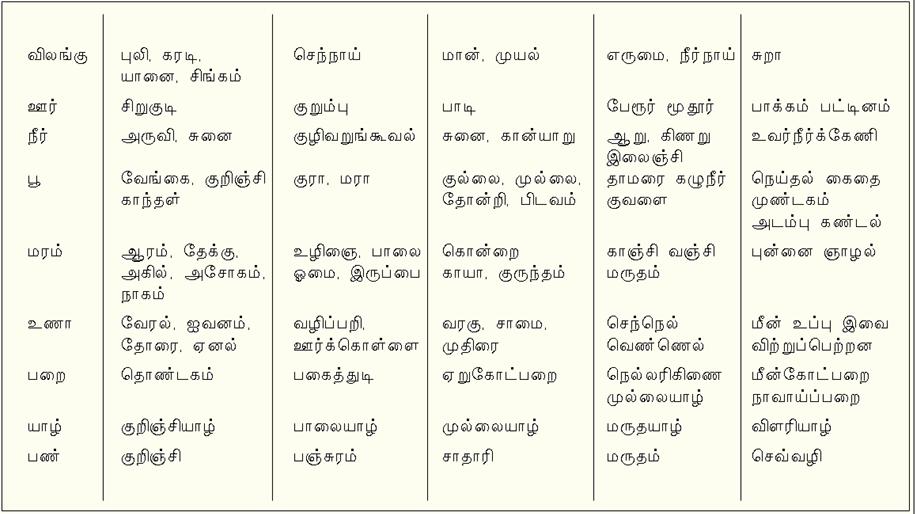 விலங்கு புலி, கரடி, செந்நாய் மான், முயல் எருமை, நீர்நாய் சுறா
யானை, சிங்கம்
ஊர் சிறுகுடி குறும்பு பாடி பேரூர் மூதூர் பாக்கம் பட்டினம்
நீர் அருவி, சுனை குழிவறுங்கூவல் சுனை, கான்யாறு ஆறு, கிணறு உவர்நீர்க்கேணி
இலைஞ்சி
பூ வேங்கை, குறிஞ்சி குரா, மரா குல்லை, முல்லை, தாமரை கழுநீர் நெய்தல் கைதை
காந்தள் தோன்றி, பிடவம் குவளை முண்டகம்
அடம்பு கண்டல்
மரம் ஆரம், தேக்கு, உழிஞை, பாலை கொன்றை காஞ்சி வஞ்சி புன்னை ஞாழல்
அகில், அசோகம், ஓமை, இருப்பை காயா, குருந்தம் மருதம்
நாகம்
உணா வேரல், ஐவனம், வழிப்பறி, வரகு, சாமை, செந்நெல் மீன் உப்பு இவை
தோரை, ஏனல் ஊர்க்கொள்ளை முதிரை வெண்ணெல் விற்றுப்பெற்றன
பறை தொண்டகம் பகைத்துடி ஏறுகோட்பறை நெல்லரிகிணை மீன்கோட்பறை
முல்லையாழ் நாவாய்ப்பறை
யாழ் குறிஞ்சியாழ் பாலையாழ் முல்லையாழ் மருதயாழ் விளரியாழ்
பண் குறிஞ்சி பஞ்சுரம் சாதாரி மருதம் செவ்வழி